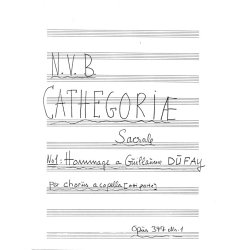 N.V.B.
CATHEGORIÆ
Sacrale
No1: Hommage a Guillaume DUFAY
per chorus a capella [otto parte]
Opus 347 No. 1